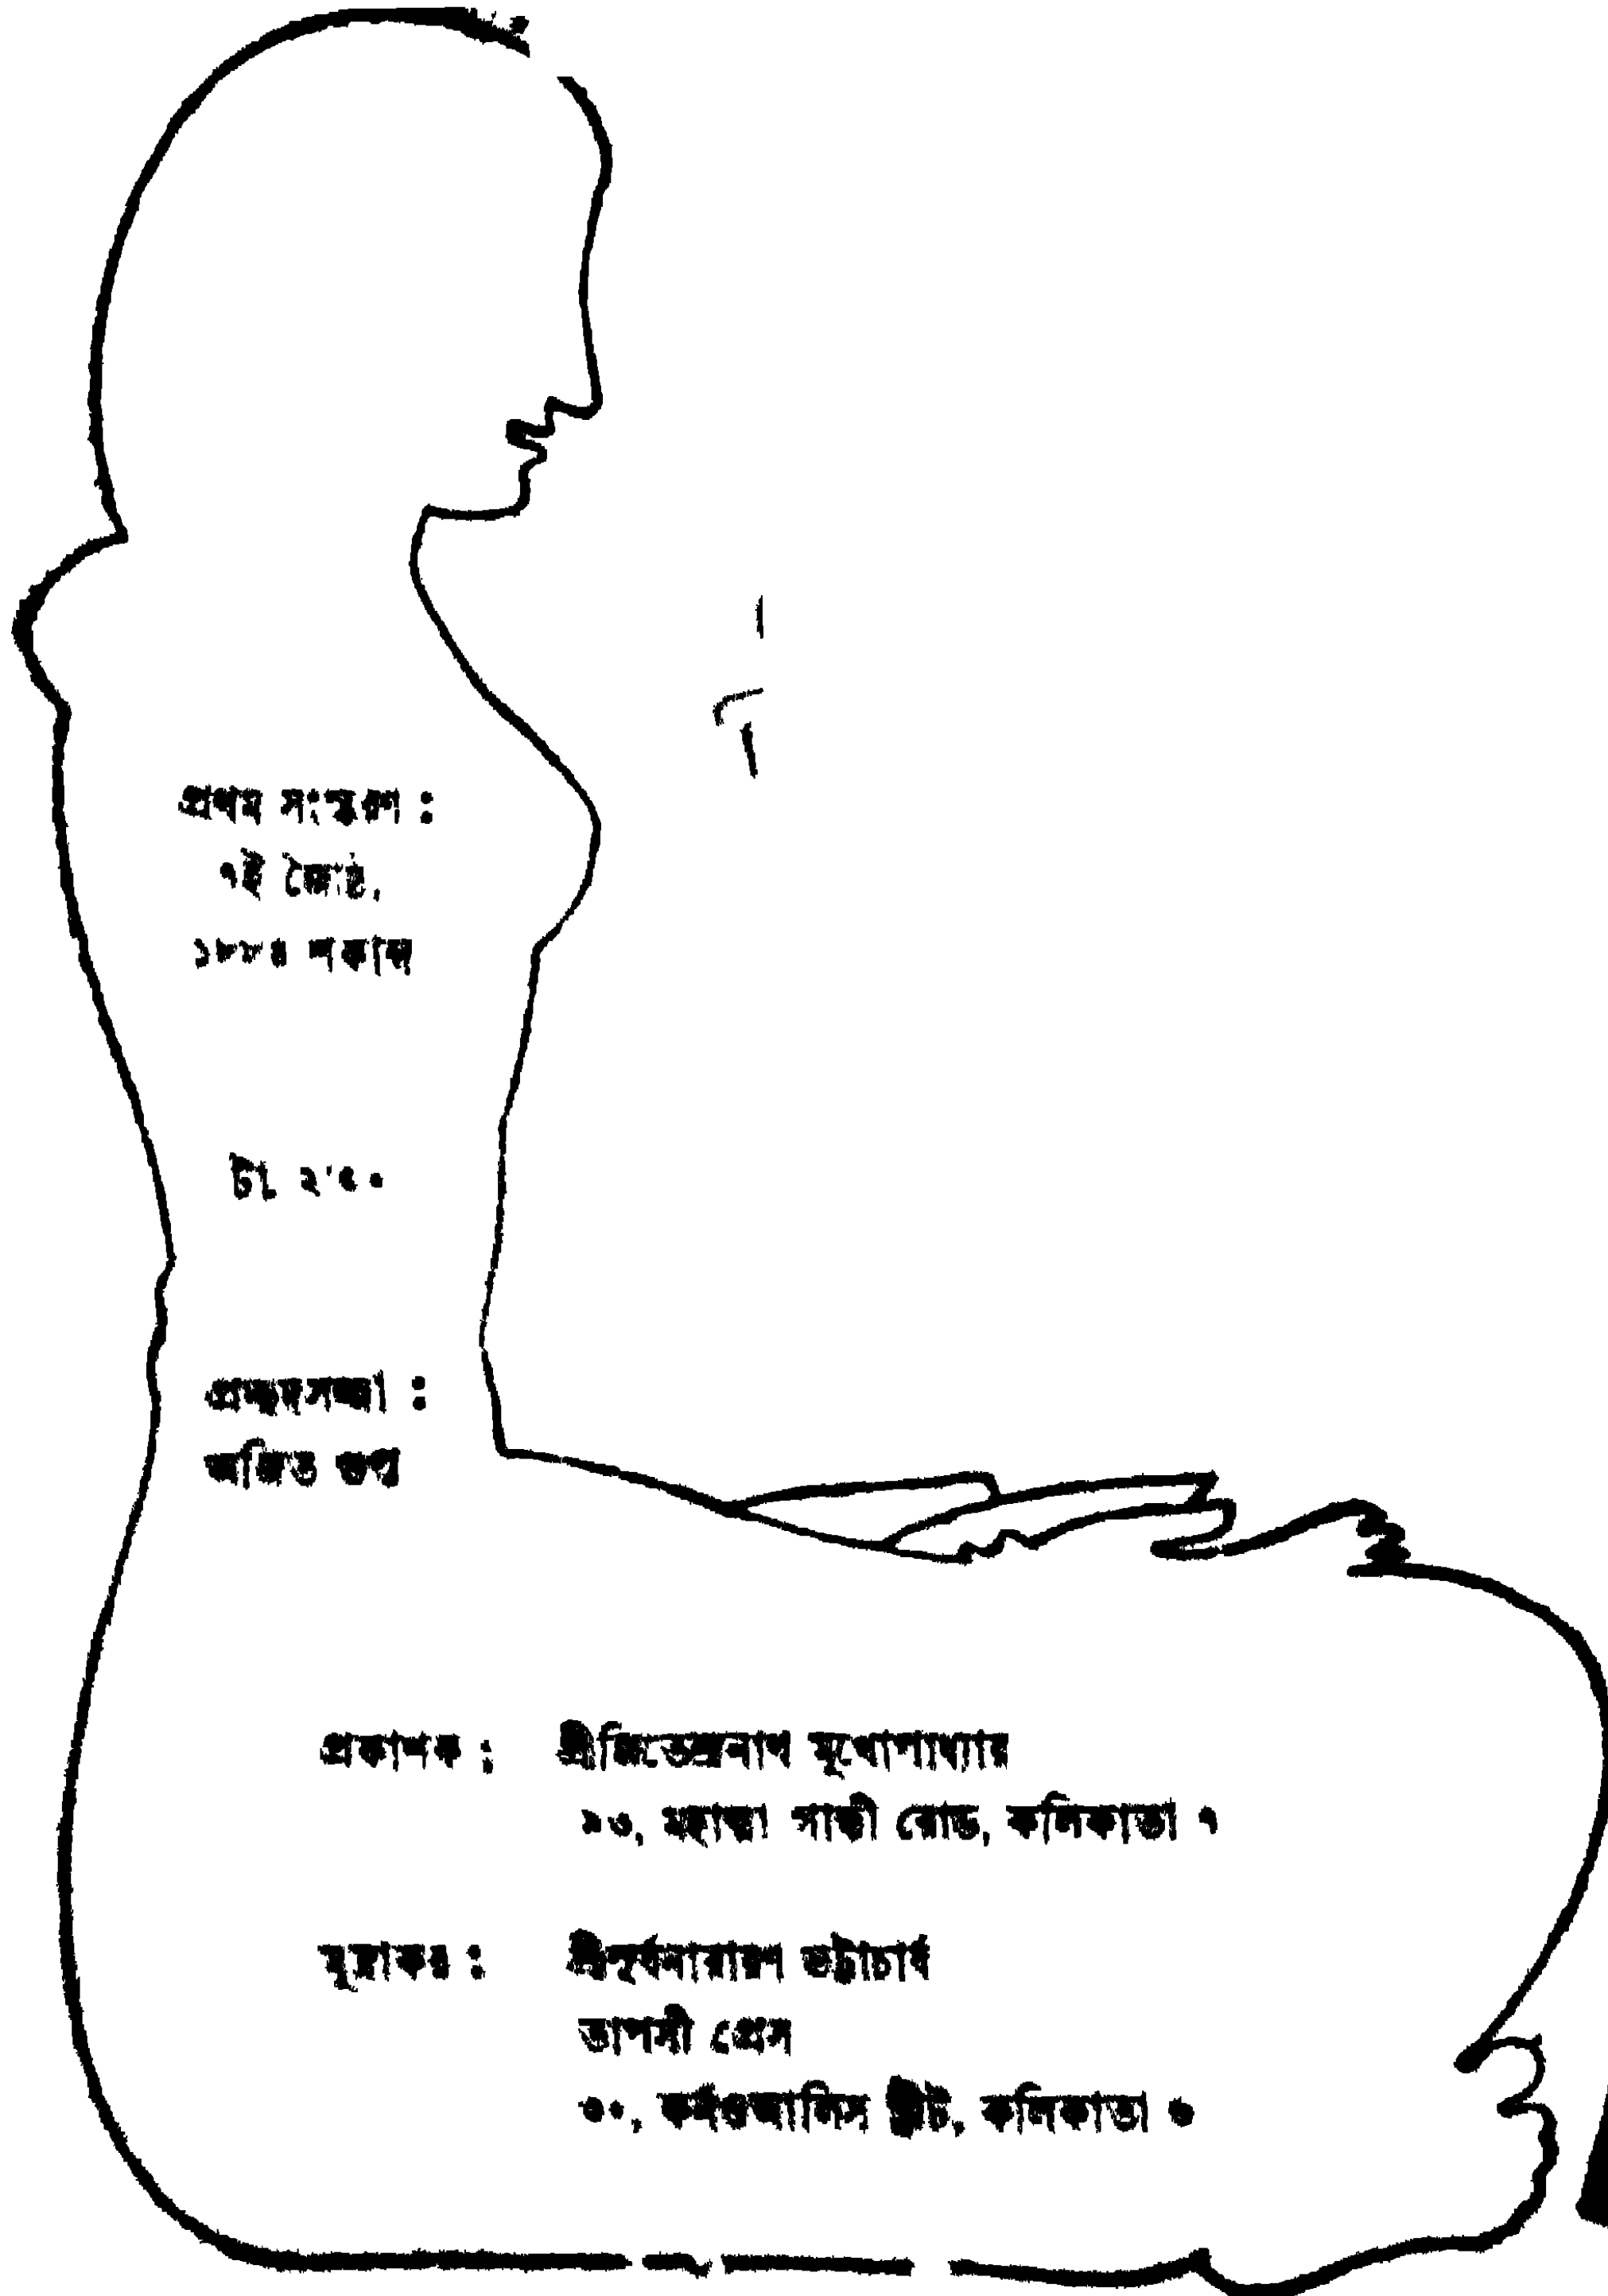 প্রথম সংস্করণ :
৭ই জ্যৈষ্ঠ,
১৮৮৪ শকাব্দ
টা. ২'৫০
প্রচ্ছদসজ্জা :
অজিত গুপ্ত
প্রকাশক : শ্রীজিতেন্দ্রনাথ মুখোপাধ্যায়
৯৩, মহাত্মা গান্ধী রোড, কলিকাতা ৭
মুদ্রাকর : শ্রীসূর্যনারায়ণ ভট্টাচার্য
তাপসী প্রেস
৩০, কর্নওআলিস স্ট্রীট, কলিকাতা ৬